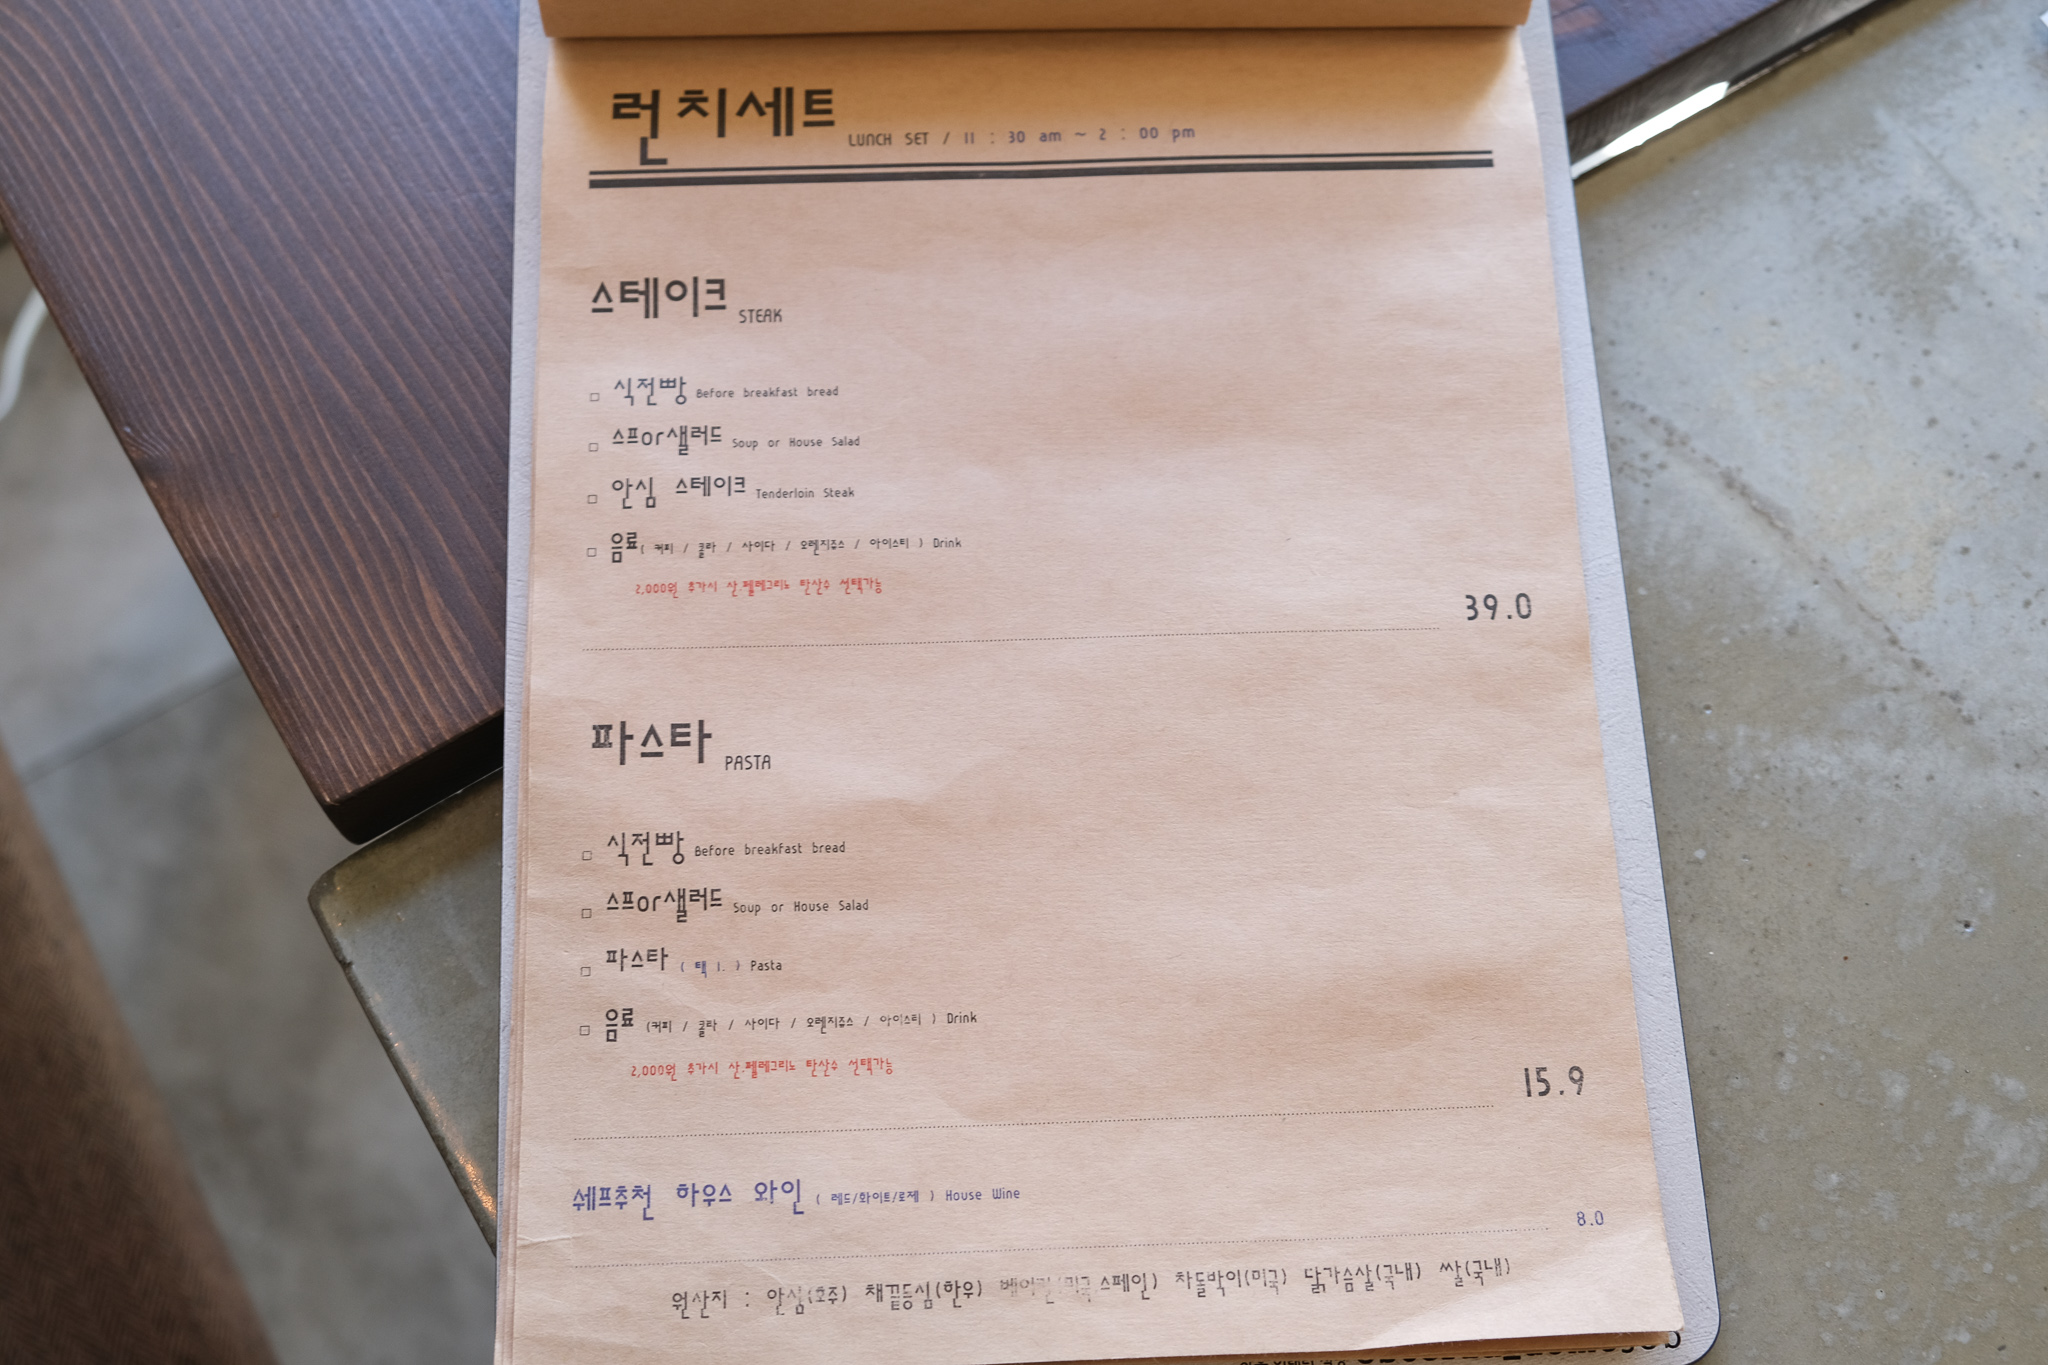 런치세트 LUNCH SET / 11 : 30 am ~ 2 : 00 pm
스테이크 STEAK
□ 식전빵 Before breakfast bread
□ 스프or샐러드 Soup or House Salad
□ 안심 스테이크 Tenderloin Steak
□ 음료( 커피 / 콜라 / 사이다 / 오렌지쥬스 / 아이스티 ) Drink
2,000원 추가시 산.펠레그리노 탄산수 선택가능
39.0
파스타 PASTA
□ 식전빵 Before breakfast bread
□ 스프or샐러드 Soup or House Salad
□ 파스타 ( 택 1. ) Pasta
□ 음료 (커피 / 콜라 / 사이다 / 오렌지쥬스 / 아이스티 ) Drink
2,000원 추가시 산.펠레그리노 탄산수 선택가능
15.9
쉐프추천 하우스 와인 ( 레드/화이트/로제 ) House Wine
8.0
원산지 : 안심(호주) 채끝등심(한우) 베이컨(미국 스페인) 차돌박이(미국) 닭가슴살(국내) 쌀(국내)